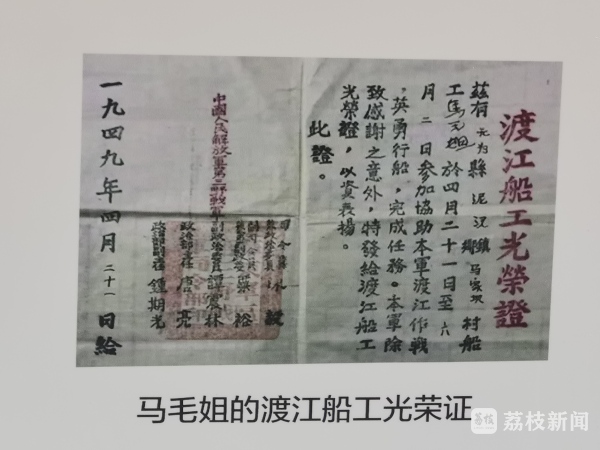 渡江船工光榮證
茲有无为縣泥汊鎮鄉馬家坝村船
工馬毛姐於四月二十一日至六
月二日參加協助本軍渡江作戰
,英勇行船,完成任務。本軍除
致感謝之意外,特發給渡江船工
光榮證,以資表揚。
此證。
中國人民解放軍第三野戰軍
司令員 毅
粟裕
副政治委員譚震林
政治部主任唐亮
政治部副主任鍾期光
一九四九年四月二十一日給
马毛姐的渡江船工光荣证
荔枝新闻